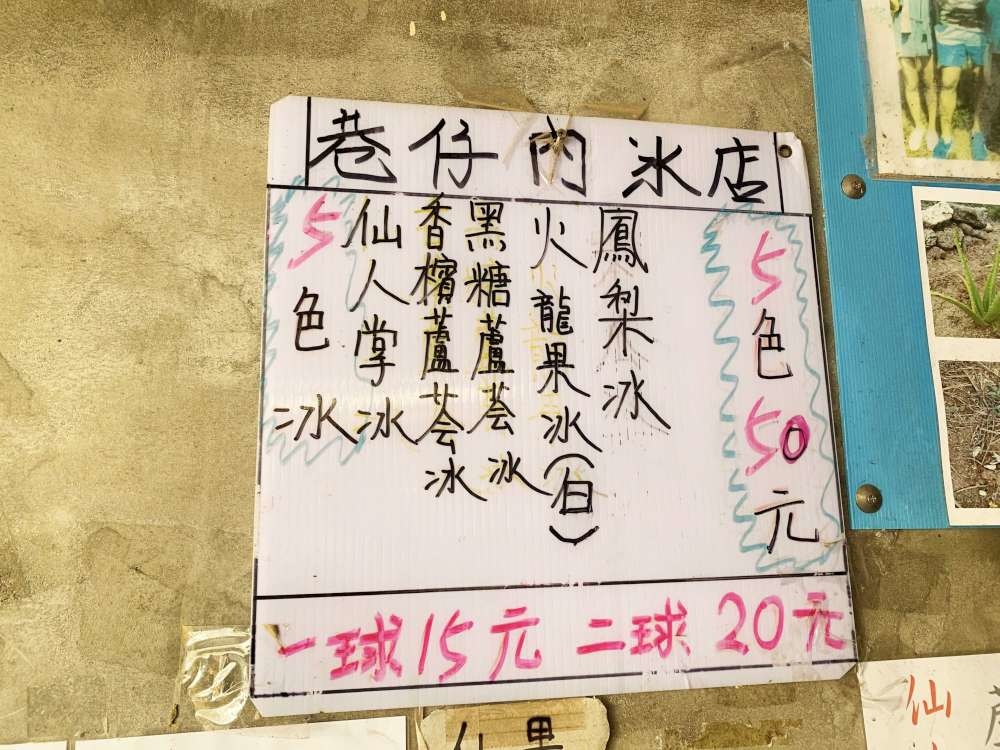 巷仔內冰店
5色50元
鳳梨冰
火龍果冰(白)
黑糖蘆薈冰
香檳蘆薈冰
仙人掌冰
5色冰
一球15元 二球20元
仙